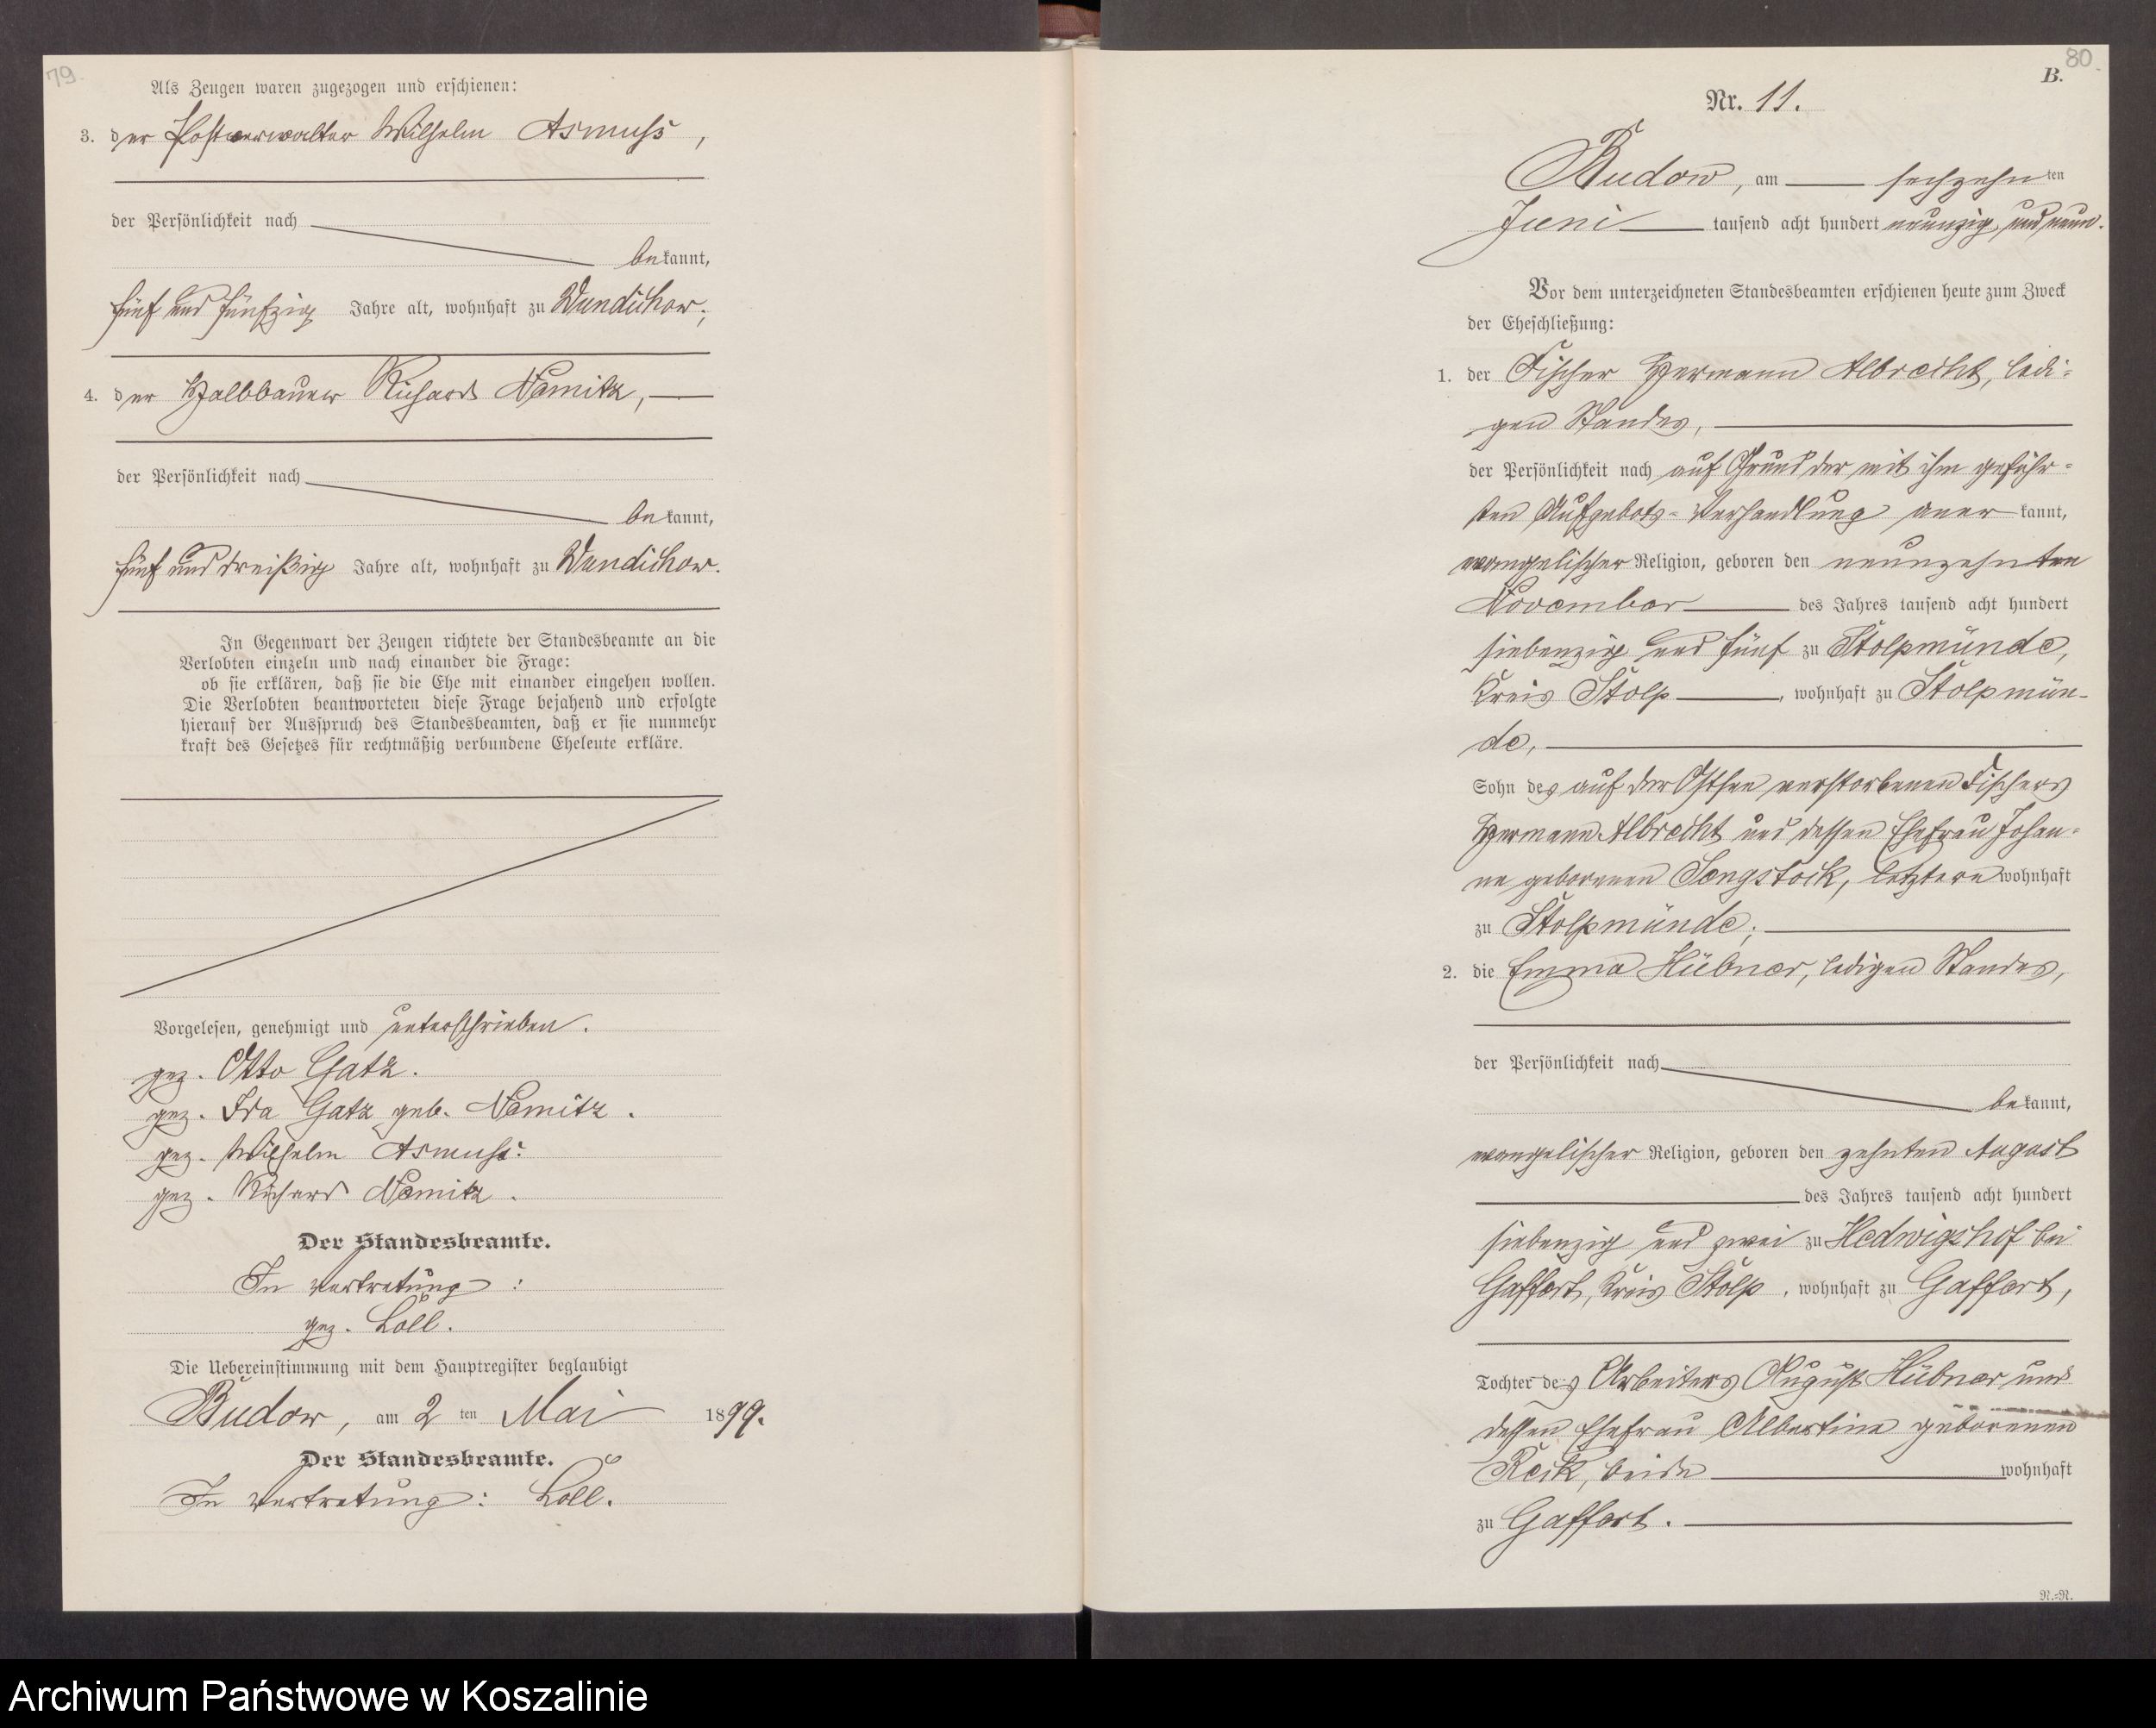 79.
Als Zeugen waren zugezogen und erschienen:
3. der Postverwalter Wilhelm Asmuss,
der Persönlichkeit nach
bekannt,
fünf und fünfzig Jahre alt, wohnhaft zu Wundichow;
4. der Halbbauer Richard Nemitz,
der Persönlichkeit nach
bekannt,
fünf und dreißig Jahre alt, wohnhaft zu Wundichow.
In Gegenwart der Zeugen richtete der Standesbeamte an die
Verlobten einzeln und nach einander die Frage:
ob sie erklären, daß sie die Ehe mit einander eingehen wollen.
Die Verlobten beantworteten diese Frage bejahend und erfolgte
hierauf der Ausspruch des Standesbeamten, daß er sie nunmehr
kraft des Gesetzes für rechtmäßig verbundene Eheleute erkläre.
Vorgelesen, genehmigt und unterschrieben.
gez. Otto Gatz.
gez. Ida Gatz geb. Nemitz.
gez. Wilhelm Asmuss.
gez. Richard Nemitz.
Der Standesbeamte.
In Vertretung:
gez. Loll.
Die Uebereinstimmung mit dem Hauptregister beglaubigt
Budow, am 2ten Mai 1899.
Der Standesbeamte.
In Vertretung: Loll.
80.
B.
Nr. 11.
Budow, am sechzehnten
Juni tausend acht hundert neunzig und neun.
Vor dem unterzeichneten Standesbeamten erschienen heute zum Zweck
der Eheschließung:
1. der Fischer Hermann Albrecht, ledi-
gen Standes,
der Persönlichkeit nach auf Grund der mit ihm geführ-
ten Aufgebots-Verhandlung anerkannt,
evangelischer Religion, geboren den neunzehnten
November des Jahres tausend acht hundert
siebenzig und fünf zu Stolpmünde,
Kreis Stolp, wohnhaft zu Stolpmün-
de,
Sohn des auf der Ostsee verstorbenen Fischers
Hermann Albrecht und dessen Ehefrau Johan-
ne geborenen Sengstock, letztere wohnhaft
zu Stolpmünde;
2. die Emma Hübner, ledigen Standes,
der Persönlichkeit nach
bekannt,
evangelischer Religion, geboren den zehnten August
des Jahres tausend acht hundert
siebenzig und zwei zu Hedwigshof bei
Gaffert, Kreis Stolp, wohnhaft zu Gaffert,
Tochter des Arbeiters August Hübner und
dessen Ehefrau Albertine geborenen
Reik, beide wohnhaft
zu Gaffert.
N.-R.
Archiwum Państwowe w Koszalinie